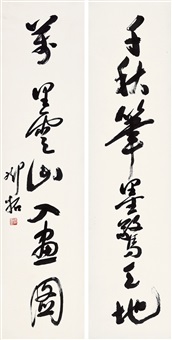 千秋筆墨驚天地
萬里雲山入畫圖
鄧拓